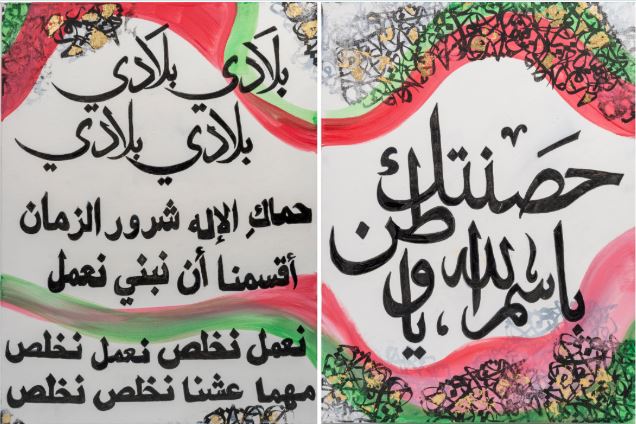 بلادي بلادي
بلادي بلادي
حماكِ الإله شرور الزمان
أقسمنا أن نبني نعمل
نعمل نخلص نعمل نخلص
مهما عشنا نخلص نخلص
حصَنتك
باسم الله
يا وطن